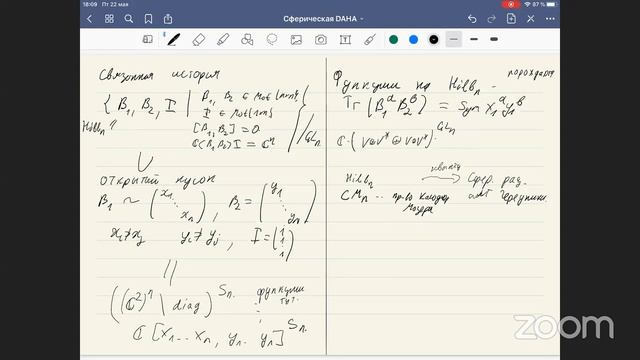 18:09 Пт 22 мая
Сферическая DAHA
87 %
Связанная история
{ B₁, B₂, I | B₁, B₂ ∈ Mat(n×n)
I ∈ Mat(1×n)
[B₁, B₂] = 0
C⟨B₁ B₂⟩I = Cⁿ } / GLₙ
Hilbₙ
∪
открытый кусок
B₁ ~ (x₁ ⋱ xₙ), B₂ = (y₁ ⋱ yₙ)
xᵢ≠xⱼ yᵢ≠yⱼ, I = (1 ⋮ 1)
||
((C²)ⁿ \ diag)^Sₙ функции тут.
C [x₁...xₙ, y₁...yₙ]^Sₙ
Функции на Hilbₙ - порождают
Tr (B₁ᵃ B₂ᵇ) = Sym x₁ᵃ y₁ᵇ
C·(V⊗V* ⊕ V⊗V*)^GLₙ
Hilbₙ → Сфер. рац.
CMₙ .. пр-во Калоджеро Мозера
алг Чередника
zoom